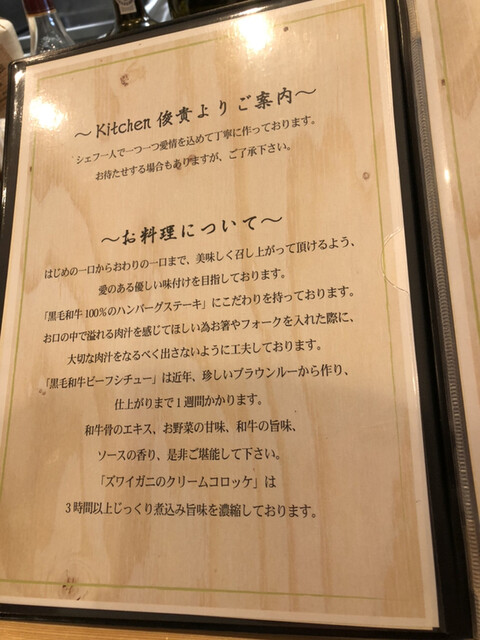 ～Kitchen 俊貴よりご案内～
シェフ一人で一つ一つ愛情を込めて丁寧に作っております。
お待たせする場合もありますが、ご了承下さい。
～お料理について～
はじめの一口からおわりの一口まで、美味しく召し上がって頂けるよう、
愛のある優しい味付けを目指しております。
「黒毛和牛100%のハンバーグステーキ」にこだわりを持っております。
お口の中で溢れる肉汁を感じてほしい為お箸やフォークを入れた際に、
大切な肉汁をなるべく出さないように工夫しております。
「黒毛和牛ビーフシチュー」は近年、珍しいブラウンルーから作り、
仕上がりまで1週間かかります。
和牛骨のエキス、お野菜の甘味、和牛の旨味、
ソースの香り、是非ご堪能して下さい。
「ズワイガニのクリームコロッケ」は
3時間以上じっくり煮込み旨味を濃縮しております。